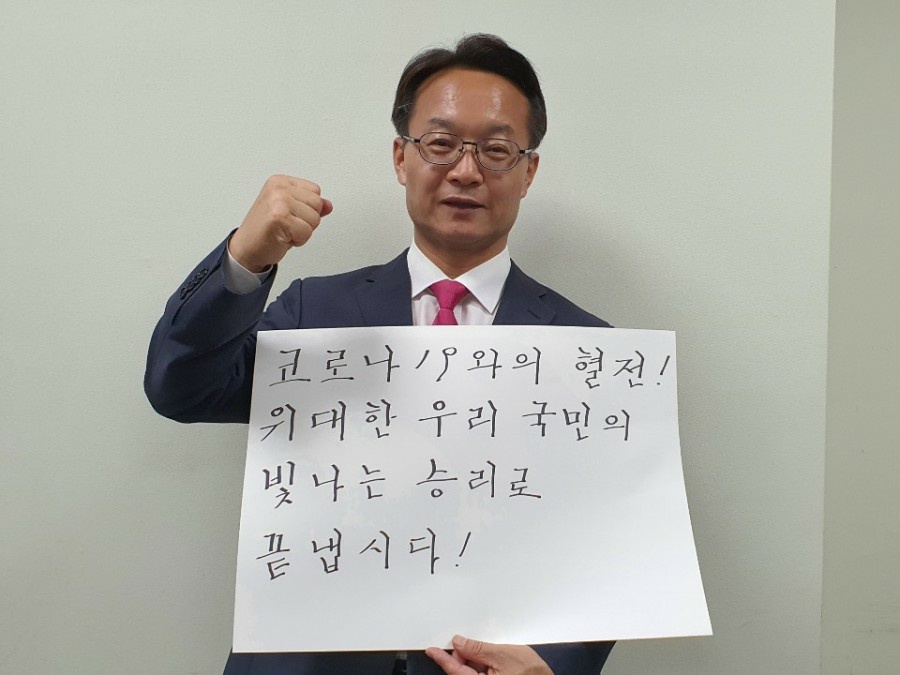 코로나19와의 혈전!
위대한 우리 국민의
빛나는 승리로
끝냅시다!